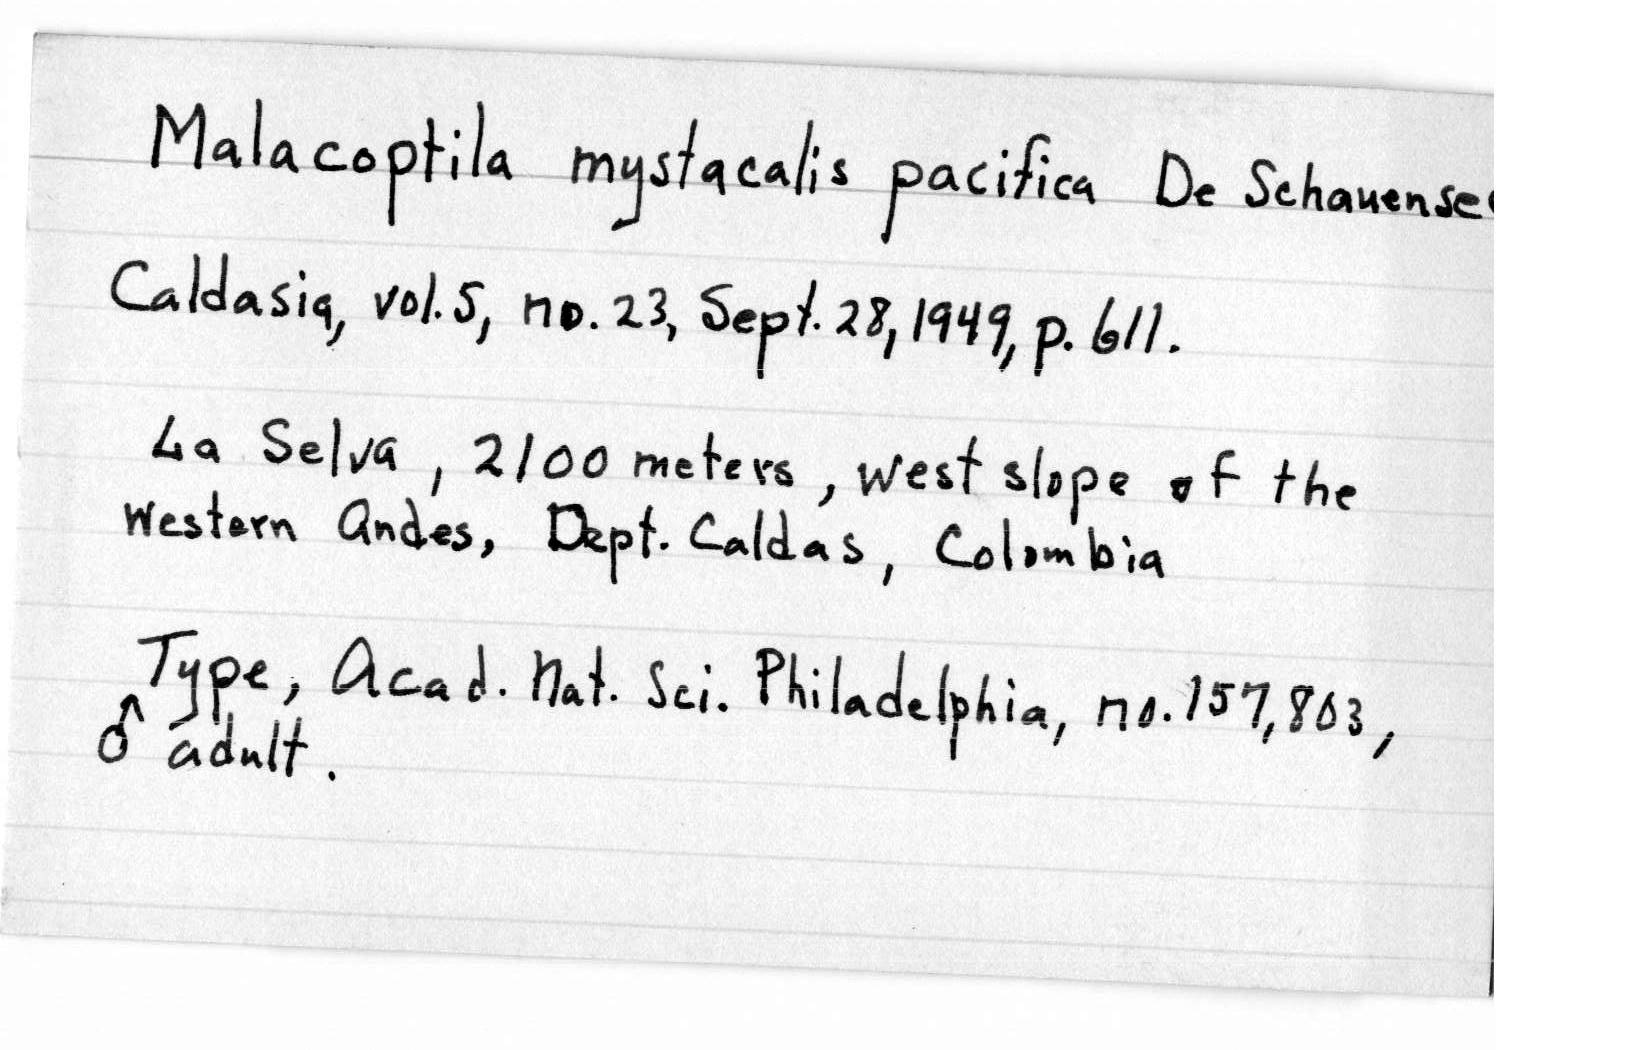 Malacoptila mystacalis pacifica De Schauensee
Caldasia, vol. 5, no. 23, Sept. 28, 1949, p. 611.
La Selva, 2100 meters, west slope of the
Western Andes, Dept. Caldas, Colombia
Type, Acad. Nat. Sci. Philadelphia, no. 157,803,
♂ adult.